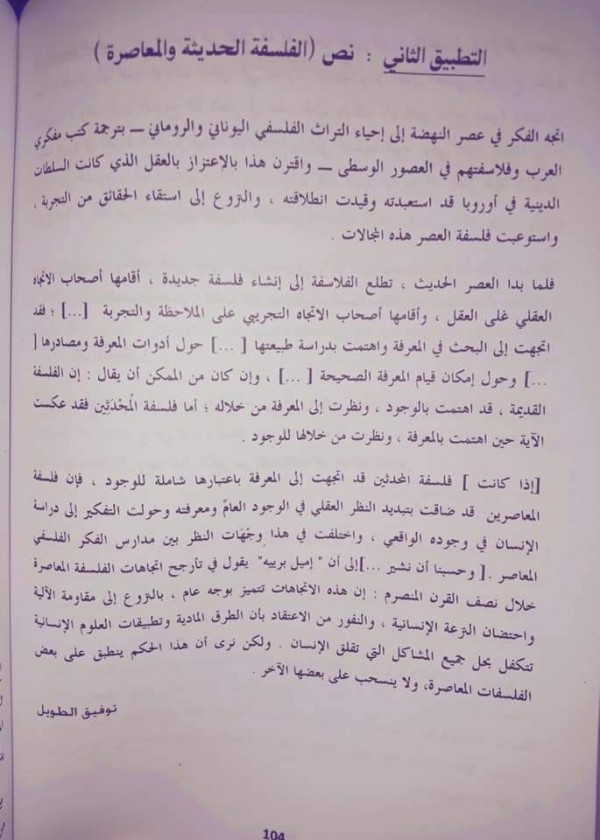 التطبيق الثاني : نص (الفلسفة الحديثة والمعاصرة )
اتجه الفكر في عصر النهضة إلى إحياء التراث الفلسفي اليوناني والروماني ــ بترجمة كتب مفكري
العرب وفلاسفتهم في العصور الوسطى ــ واقترن هذا بالإعتزاز بالعقل الذي كانت السلطات
الدينية في أوروبا قد استعبدته وقيدت انطلاقته ، والنزوع إلى استقاء الحقائق من التجربة ،
واستوعبت فلسفة العصر هذه المجالات .
فلما بدا العصر الحديث ، تطلع الفلاسفة إلى إنشاء فلسفة جديدة ، أقامها أصحاب الاتجاه
العقلي غلى العقل ، وأقامها أصحاب الاتجاه التجريبي على الملاحظة والتجربة [...] ؛ فقد
اتجهت إلى البحث في المعرفة واهتمت بدراسة طبيعتها [ ...] حول أدوات المعرفة ومصادرها [
...] وحول إمكان قيام المعرفة الصحيحة [ ...] ، وإن كان من الممكن أن يقال : إن الفلسفة
القديمة ، قد اهتمت بالوجود ، ونظرت إلى المعرفة من خلاله ؛ أما فلسفة الْمُحْدَثِين فقد عكست
الآية حين اهتمت بالمعرفة ، ونظرت من خلالها للوجود .
[إذا كانت ] فلسفة المحدثين قد اتجهت إلى المعرفة باعتبارها شاملة للوجود ، فإن فلسفة
المعاصرين قد ضاقت بتبديد النظر العقلي في الوجود العامّ ومعرفته وحولت التفكير إلى دراسة
الإنسان في وجوده الواقعي ، واختلفت في هذا وِجْهَات النظر بين مدارس الفكر الفلسفي
المعاصر .[ وحسبنا أن نشير ...]إلى أن " إميل برييه" يقول في تأرجح اتجاهات الفلسفة المعاصرة
خلال نصف القرن المنصرم : إن هذه الاتجاهات تتميز بوجه عام ، بالنزوع إلى مقاومة الآلية
واحتضان النزعة الإنسانية ، والنفور من الاعتقاد بأن الطرق المادية وتطبيقات العلوم الإنسانية
تتكفل بحل جميع المشاكل التي تقلق الإنسان . ولكن نرى أن هذا الحكم ينطبق على بعض
الفلسفات المعاصرة، ولا ينسحب على بعضها الآخر .
توفيق الطويل
104